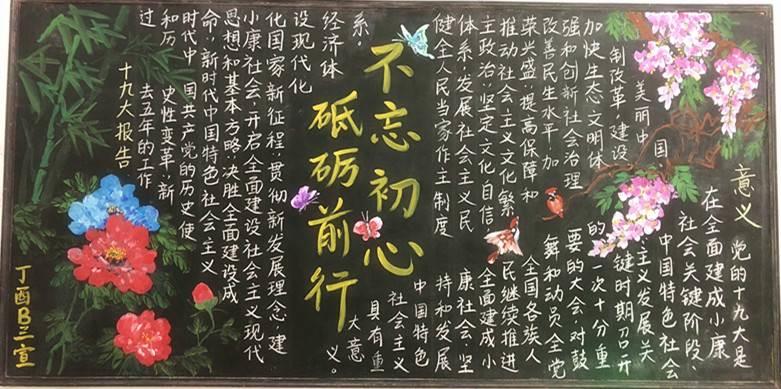 十九大报告
过去五年的工作
和历史性变革;新
时代中国共产党的历史使
命;新时代中国特色社会主义
思想和基本方略;决胜全面建设成
小康社会,开启全面建设社会主义现代
化国家新征程;贯彻新发展理念,建
设现代化
经济体
系。
不忘初心
砥砺前行
健全人民当家作主制度
体系;发展社会主义民
主政治;坚定文化自信,
推动社会主义文化繁
荣兴盛;提高保障和
改善民生水平,加
强和创新社会治理
加快生态文明体
制改革,建设
美丽中国
意义
党的十九大是
在全面建成小康
社会关键阶段、
中国特色社会
主义发展关
键时期召开
的一次十分重
要的大会,对鼓
舞和动员全党
全国各族人
民继续推进
全面建成小
康社会、坚
持和发展
中国特色
社会主义
具有重
大意
义。
丁酉B三宣